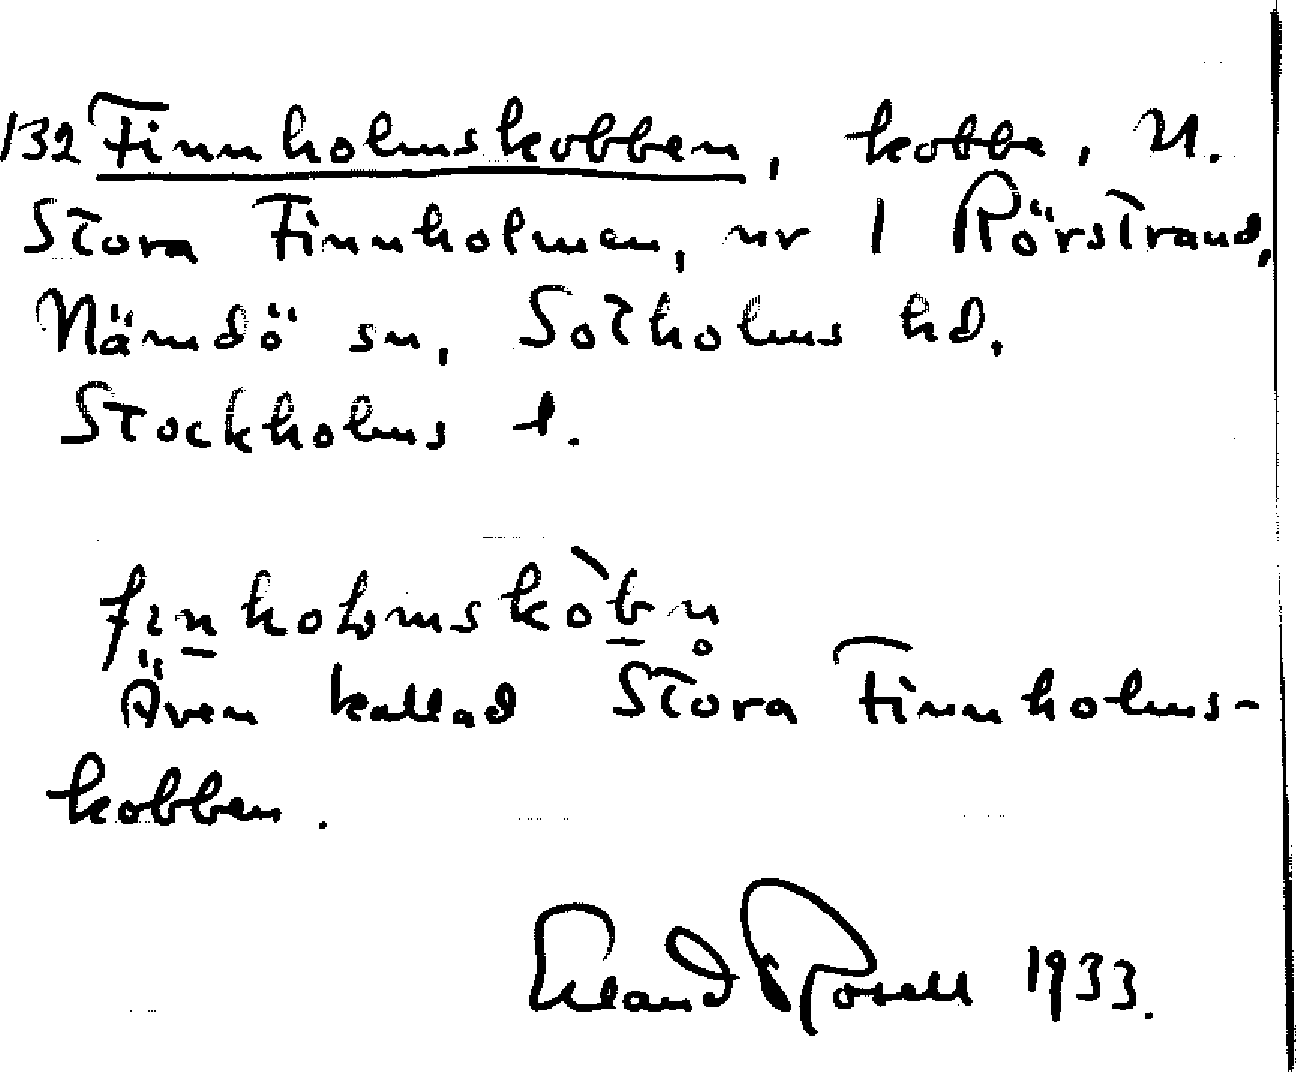 132 Finnholmskobben, kobbe, N.
Stora Finnholmen, nr 1 Rörstrand,
Nämdö sn, Sotholms hd.
Stockholms l.
fın̲holmskòb̲n̥
Även kallad Stora Finnholms-
kobben.
Erland Rosell 1933.